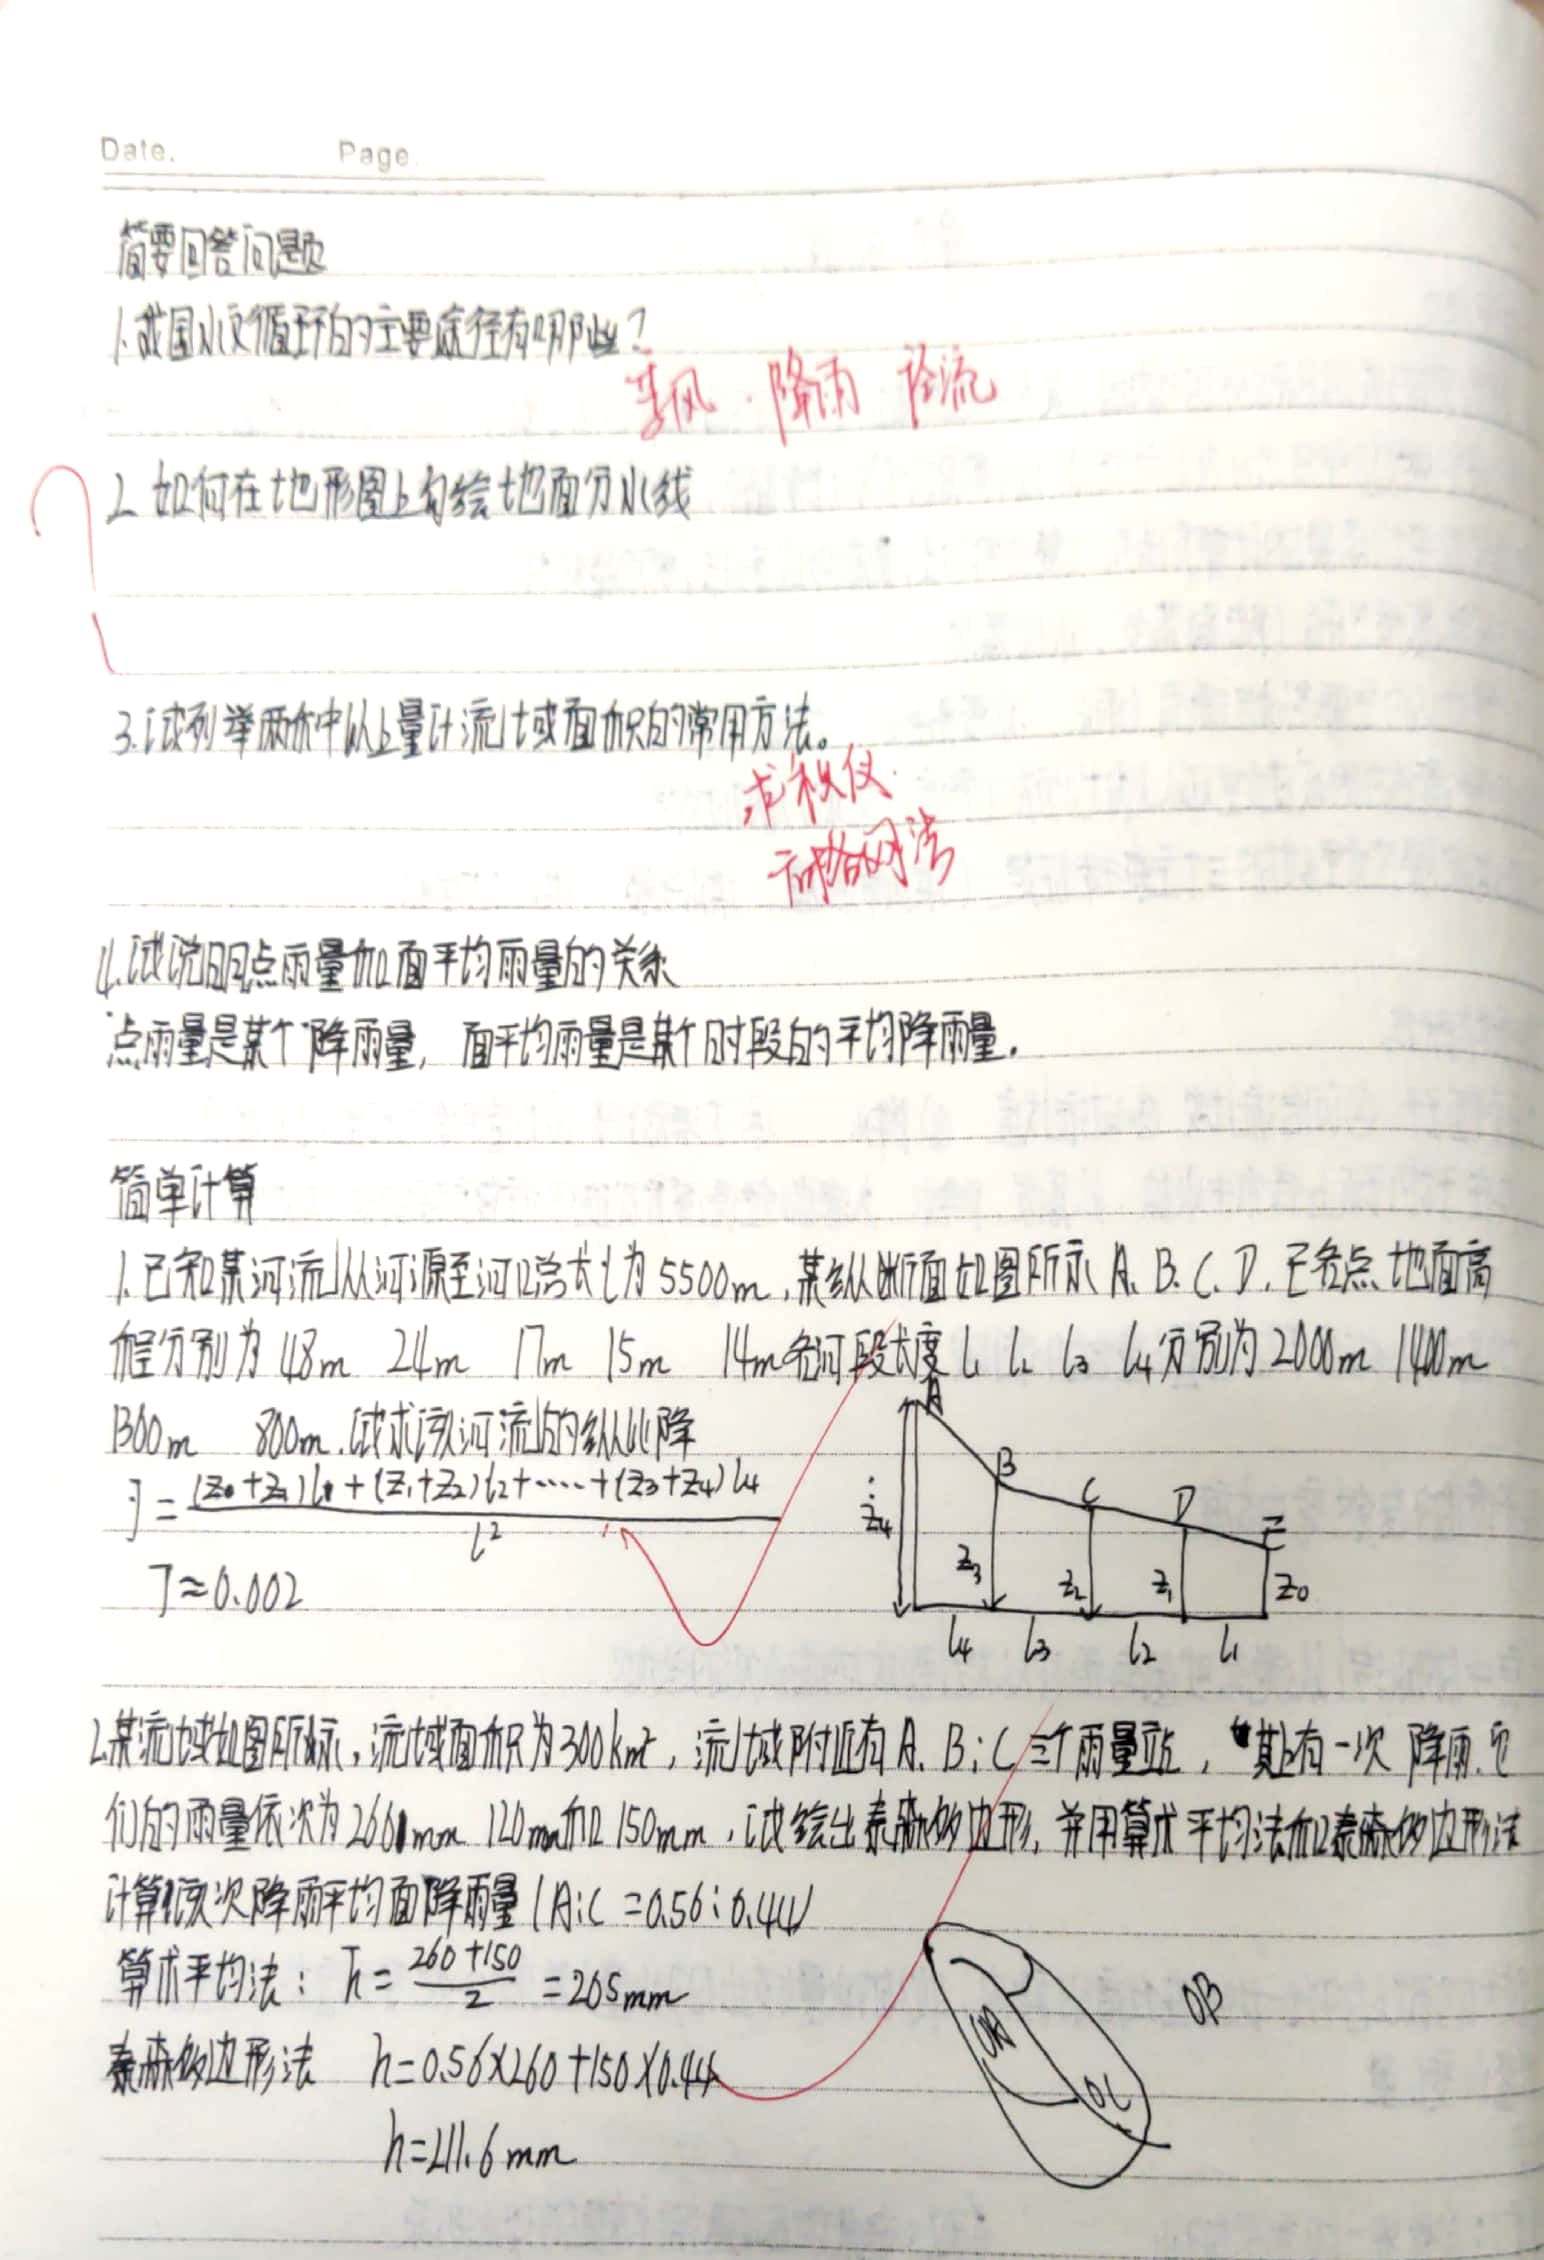 Date. Page.
简要回答问题
1.我国水文循环的主要途径有哪些?
季风 . 降雨 径流
2. 如何在地形图上勾绘地面分水线
3.试列举两种以上量计流域面积的常用方法。
求积仪.
网格法
4.试说明点雨量和面平均雨量的关系
点雨量是某个降雨量, 面平均雨量是某个时段的平均降雨量.
简单计算
1.已知某河流从河源至河口总长l为5500m,某纵断面如图所示A.B.C.D.E各点地面高
程分别为48m 24m 17m 15m 14m各河段长度l1 l2 l3 l4分别为2000m 1400m
1300m 800m.试求该河流的纵比降
J=(z0+z1)l1+(z1+z2)l2+……+(z3+z4)l4
l²
J≈0.002
A
B
C
D
E
z4
z3
z2
z1
z0
l4 l3 l2 l1
2.某流域如图所示,流域面积为300km²,流域附近有A.B;C三个雨量站,其上有一次降雨.它
们的雨量依次为260mm 120mm和150mm,试绘出泰森多边形,并用算术平均法和泰森多边形法
计算该次降雨平均面降雨量(A:C=0.56:0.44)
算术平均法: h=260+150/2=205mm
泰森多边形法 h=0.56×260+150×0.44
h=211.6mm
OA
OB
OC